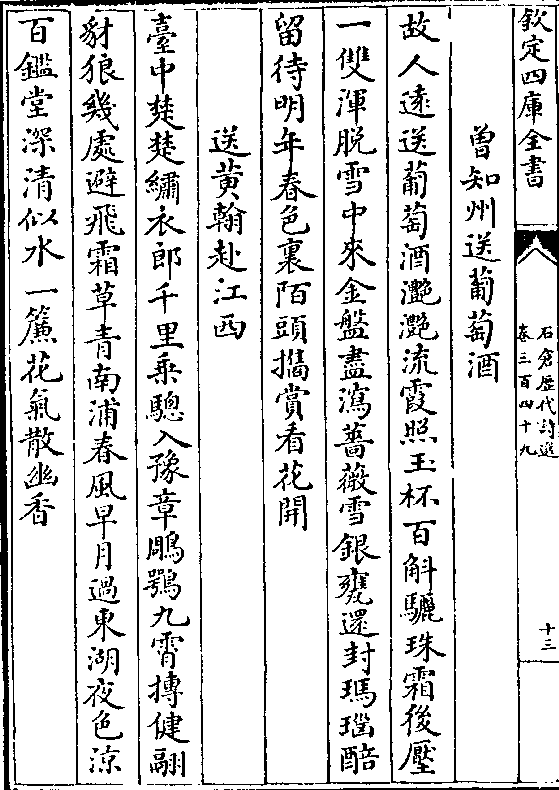 欽定四庫全書
石倉歷代詩選
卷三百四十九
十三
曾知州送葡萄酒
故人遠送葡萄酒灔灔流霞照玉杯百斛驪珠霜後壓
一雙渾脱雪中來金盤盡瀉薔薇雪銀甕還封瑪瑙醅
留待明年春色裏陌頭擕賞看花開
送黄翰赴江西
臺中楚楚繡衣郎千里乗驄入豫章鵰鶚九霄摶健翮
豺狼幾處避飛霜草青南浦春風早月過東湖夜色涼
百鑑堂深清似水一簾花氣散幽香